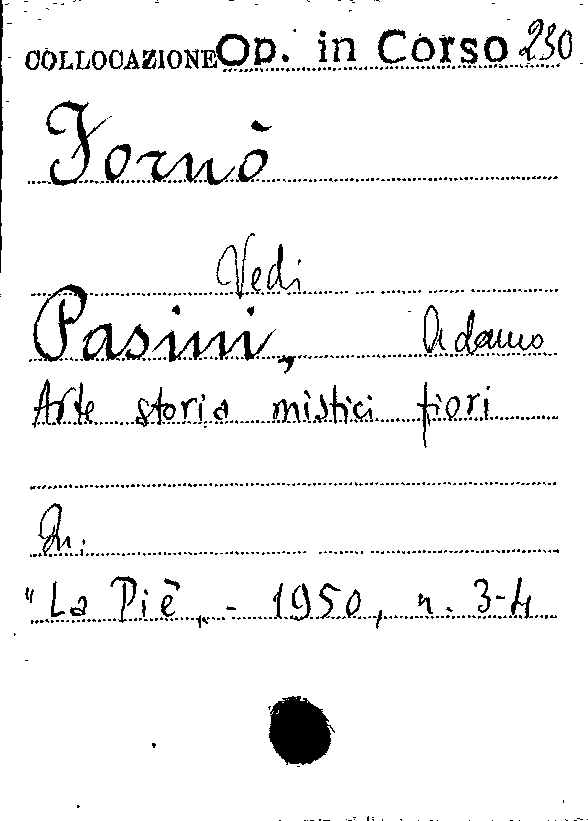 COLLOCAZIONE Op. in Corso 230
Fornò
Vedi
Pasini, Adamo
Arte storia mistici fiori
In:
"La Piê„ - 1950, n. 3-4